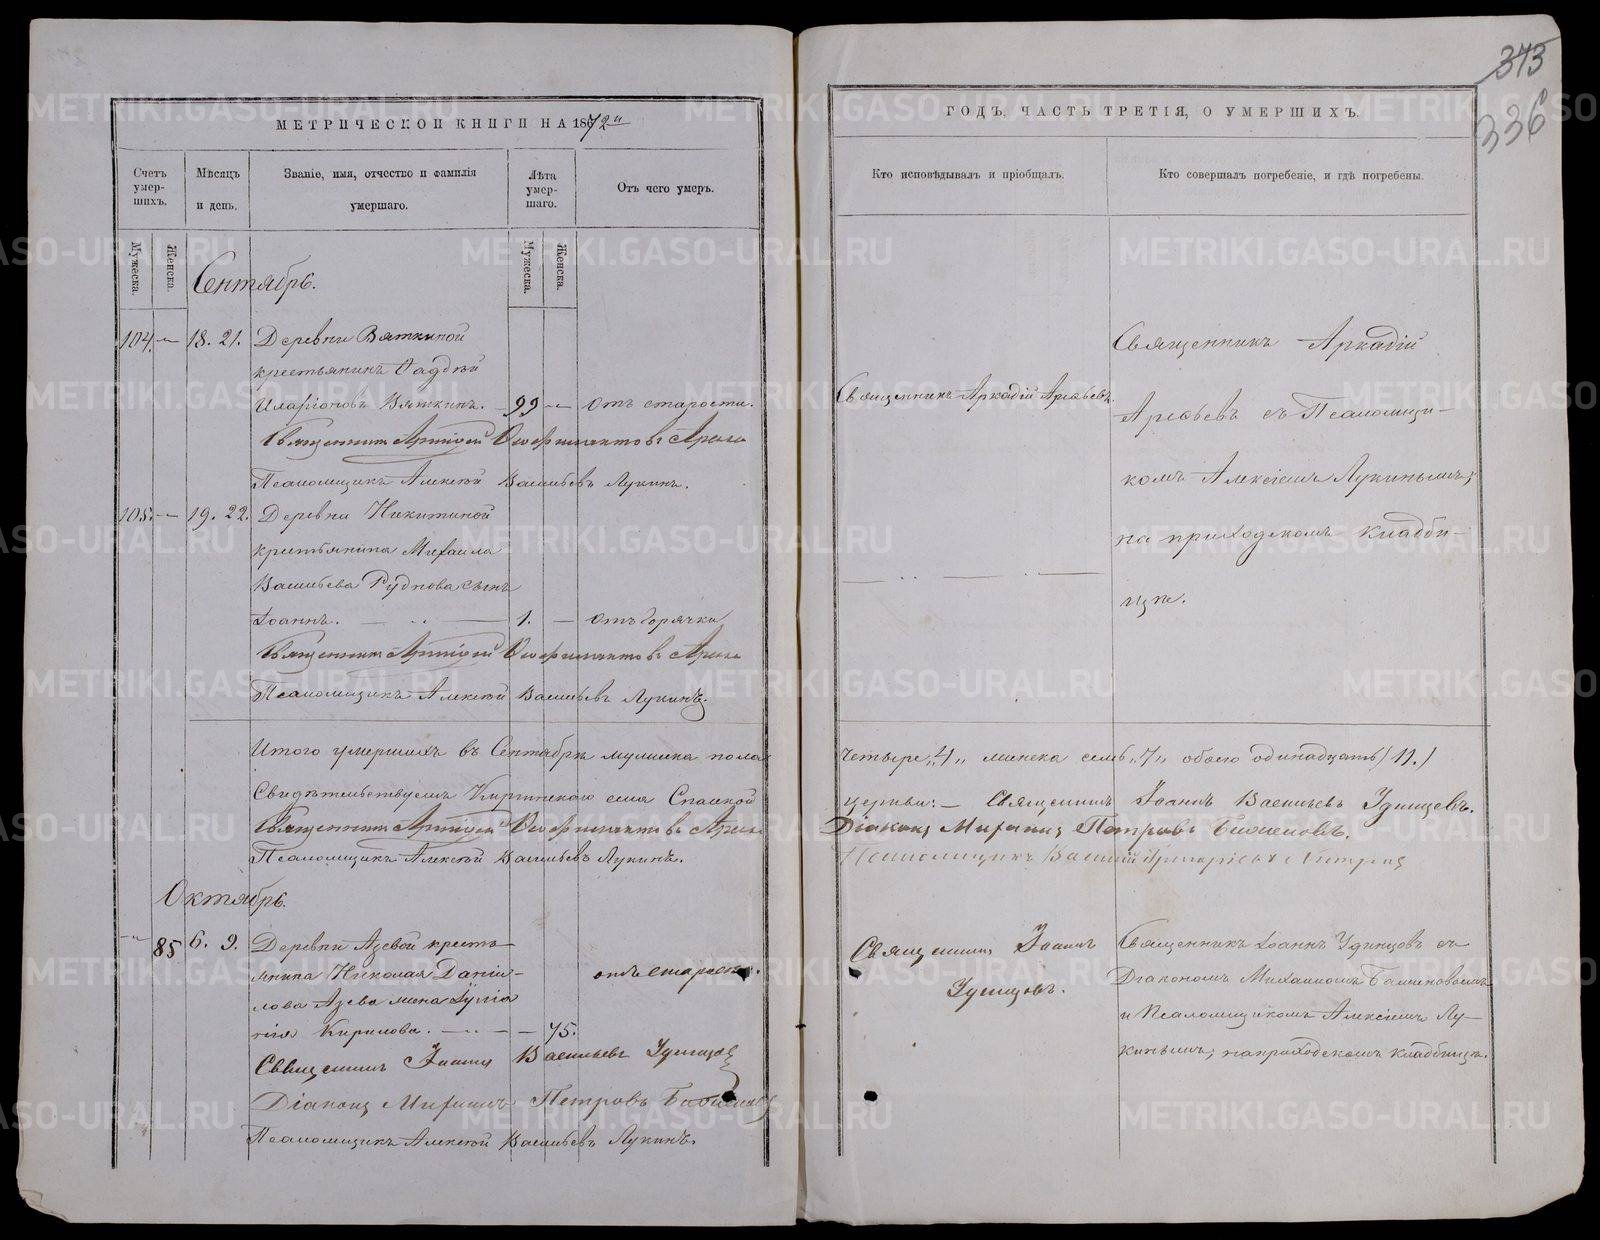 373
336
МЕТРИЧЕСКОЙ КНИГИ НА 1872й
Счетъ умер-шихъ.
Мѣсяцъ и день.
Званіе, имя, отчество и фамилія умершаго.
Лѣта умер-шаго.
Отъ чего умеръ.
Мужеска.
Женска.
Мужеска.
Женска.
Сентябрь.
104. — 18. 21. Деревни Вяткиной
крестьянинъ Фаддѣй
Иларіоновъ Вяткинъ. 99 — отъ старости.
Священникъ Аркадій Арефьевъ
Псаломщикъ Алексѣй Васильевъ Лукинъ.
105. — 19. 22. Деревни Никитиной
крестьянина Михаила
Васильева Руднова сынъ
Іоаннъ. 1. — отъ горячки
Священникъ Аркадій Арефьевъ
Псаломщикъ Алексѣй Васильевъ Лукинъ.
Итого умершихъ въ Сентябрѣ мужеска пола
Свидѣтельствуемъ Киргинскаго села Спасской
Священникъ Аркадій Арефьевъ
Псаломщикъ Алексѣй Васильевъ Лукинъ.
Октябрь.
85 6. 9. Деревни Азевой кресть-
янина Николая Данiи-
лова Азева жена
Кирилова. — 75. отъ старости.
Священникъ Іоаннъ Васильевъ Удинцовъ
Діаконъ Михаилъ Петровъ
Псаломщикъ Алексѣй Васильевъ Лукинъ.
ГОДЪ, ЧАСТЬ ТРЕТІЯ, О УМЕРШИХЪ.
Кто исповѣдывалъ и пріобщалъ.
Кто совершалъ погребеніе, и гдѣ погребены.
Священникъ Аркадій Арефьевъ.
Священникъ Аркадій
Арефьевъ съ Псаломщи-
комъ Алексіемъ Лукинымъ;
на приходскомъ кладби-
щѣ.
четыре "4" женска семь "7" обоего одинадцать (11.)
церкви: — Священникъ Іоаннъ Васильевъ Удинцевъ.
Діаконъ Михаилъ Петровъ
Псаломщикъ Василій
Священникъ Іоаннъ
Удинцовъ.
Священникъ Іоаннъ Удинцовъ съ
Діакономъ Михаиломъ
и Псаломщикомъ Алексіемъ Лу-
кинымъ; на приходскомъ кладбищѣ.
METRIKI.GASO-URAL.RU